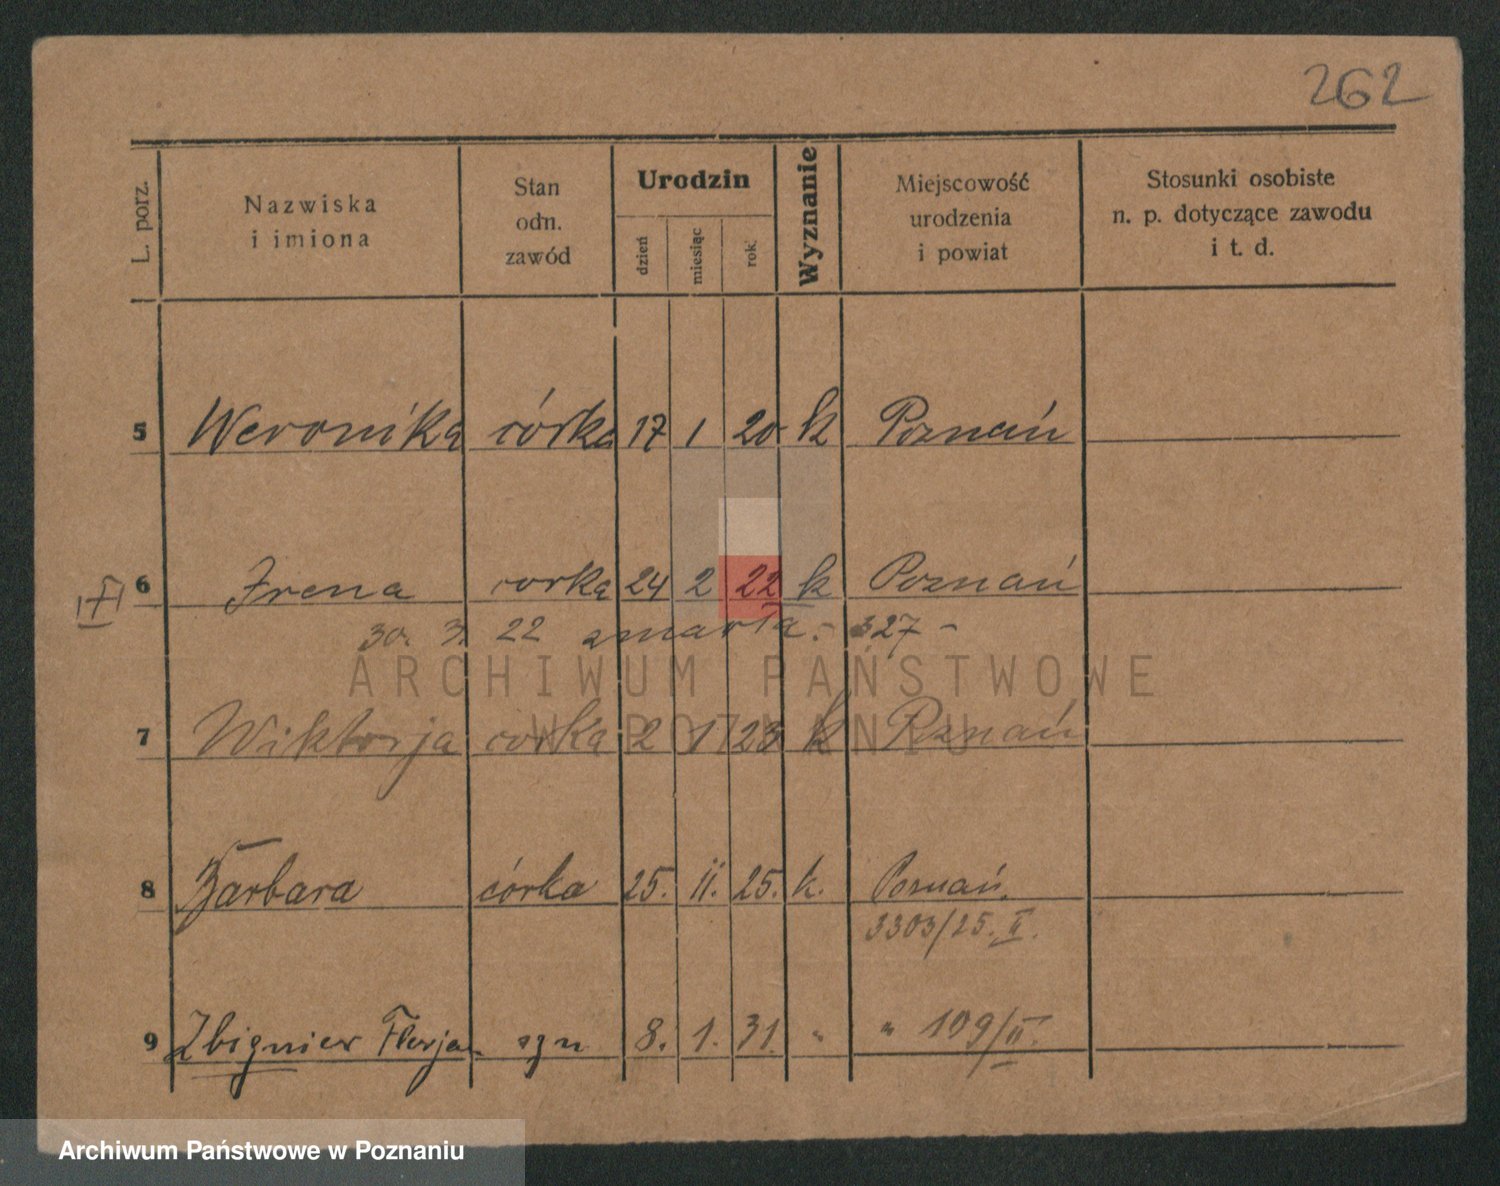 262
L. porz.
Nazwiska
i imiona
Stan
odn.
zawód
Urodzin
dzień
miesiąc
rok.
Wyznanie
Miejscowość
urodzenia
i powiat
Stosunki osobiste
n. p. dotyczące zawodu
i t. d.
5 Weronika córka 17 1 20 k Poznań
6 Irena corka 24 2 22 k Poznań
30. 3. 22 zmarła. - 327 -
ARCHIWUM PAŃSTWOWE
W POZNANIU
7 Wiktorja corka 2 1 23 k Poznań
8 Barbara córka 25. II. 25. k. Poznań.
3303/25. II.
9 Zbigniew Florja. syn 8. 1. 31. " " 109/II.
Archiwum Państwowe w Poznaniu